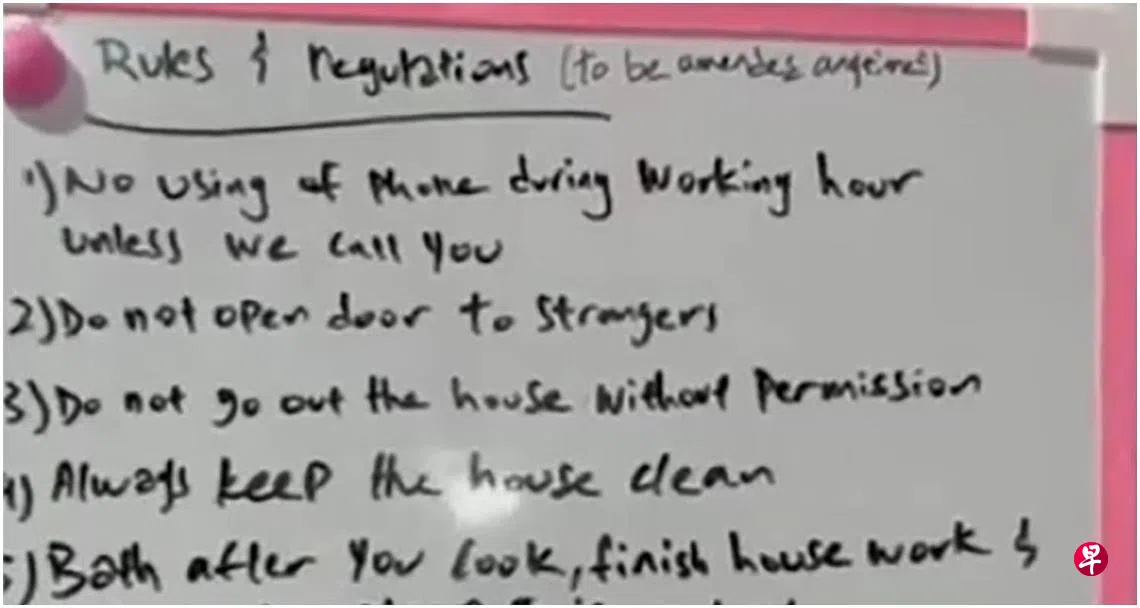 Rules & regulations (to be amended anytime)
1) No using of phone during working hour
unless we call you
2) Do not open door to strangers
3) Do not go out the house without permission
4) Always keep the house clean
5) Bath after you cook, finish house work &
早